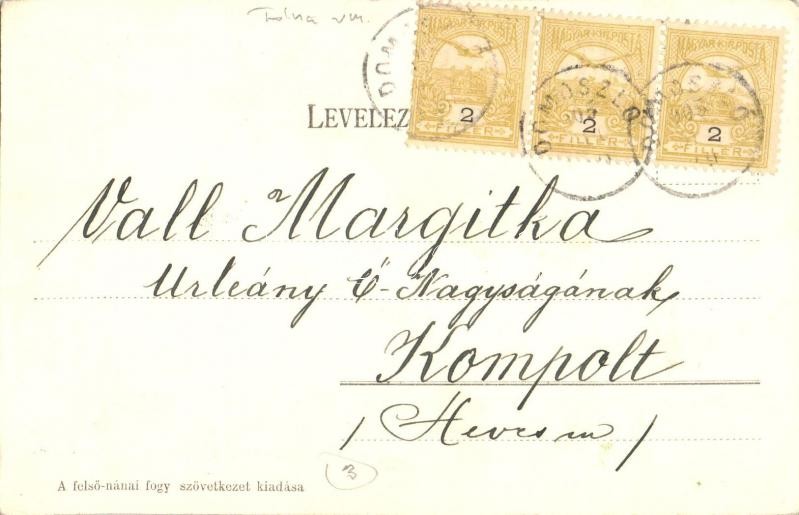 Tolna vm.
MAGYAR KIR. POSTA MAGYAR KIR. POSTA MAGYAR KIR. POSTA
2 2 2
FILLÉR FILLÉR FILLÉR
DOMOSZLÓ DOMOSZLÓ
LEVELEZ
Vall Margitka
Urleány Ő-Nagyságának
Kompolt
/Heves m/
3
A felső-nánai fogy szövetkezet kiadása